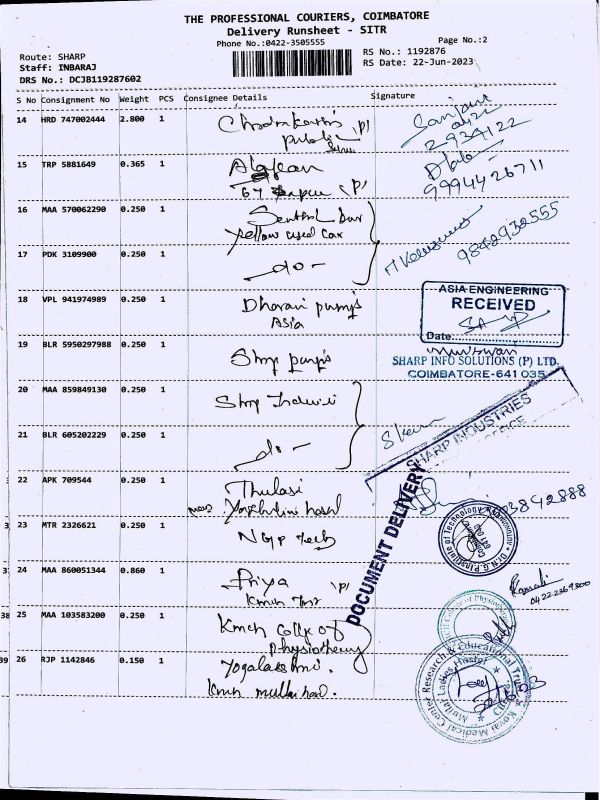 THE PROFESSIONAL COURIERS, COIMBATORE
Delivery Runsheet - SITR
Phone No.:0422-3505555
Page No.:2
Route: SHARP
Staff: INBARAJ
DRS No.: DCJB119287602
RS No.: 1192876
RS Date: 22-Jun-2023
S No Consignment No Weight PCS Consignee Details Signature
14 HRD 747002444 2.800 1
Public (P)
15 TRP 5881649 0.365 1
(P)
9994426711
16 MAA 570062290 0.250 1
Yellow used car
9842932555
17 PDK 3109900 0.250 1 -do-
18 VPL 941974989 0.250 1 Dharani pumps
Asia
ASIA ENGINEERING
RECEIVED
Date
19 BLR 5950297988 0.250 1 Sharp pumps
SHARP INFO SOLUTIONS (P) LTD.
COIMBATORE-641 035
20 MAA 859849130 0.250 1 Sharp
SHARP INDUSTRIES
21 BLR 605202229 0.250 1 -do-
22 APK 709544 0.250 1 Thulasi
DOCUMENT DELIVERY
23 MTR 2326621 0.250 1 NGP Tech
Dr.N.G.P.Institute of Technology
24 MAA 860051344 0.860 1 Priya (P)
Kmch
0422 2369300
38 25 MAA 103583200 0.250 1 Kmch College of
Physiotherapy
39 26 RJP 1142846 0.150 1 Yogalakshmi.
Kmch mullai hostel.
Kovai Medical Center Research & Educational Trust
Mullai Ladies Hostel